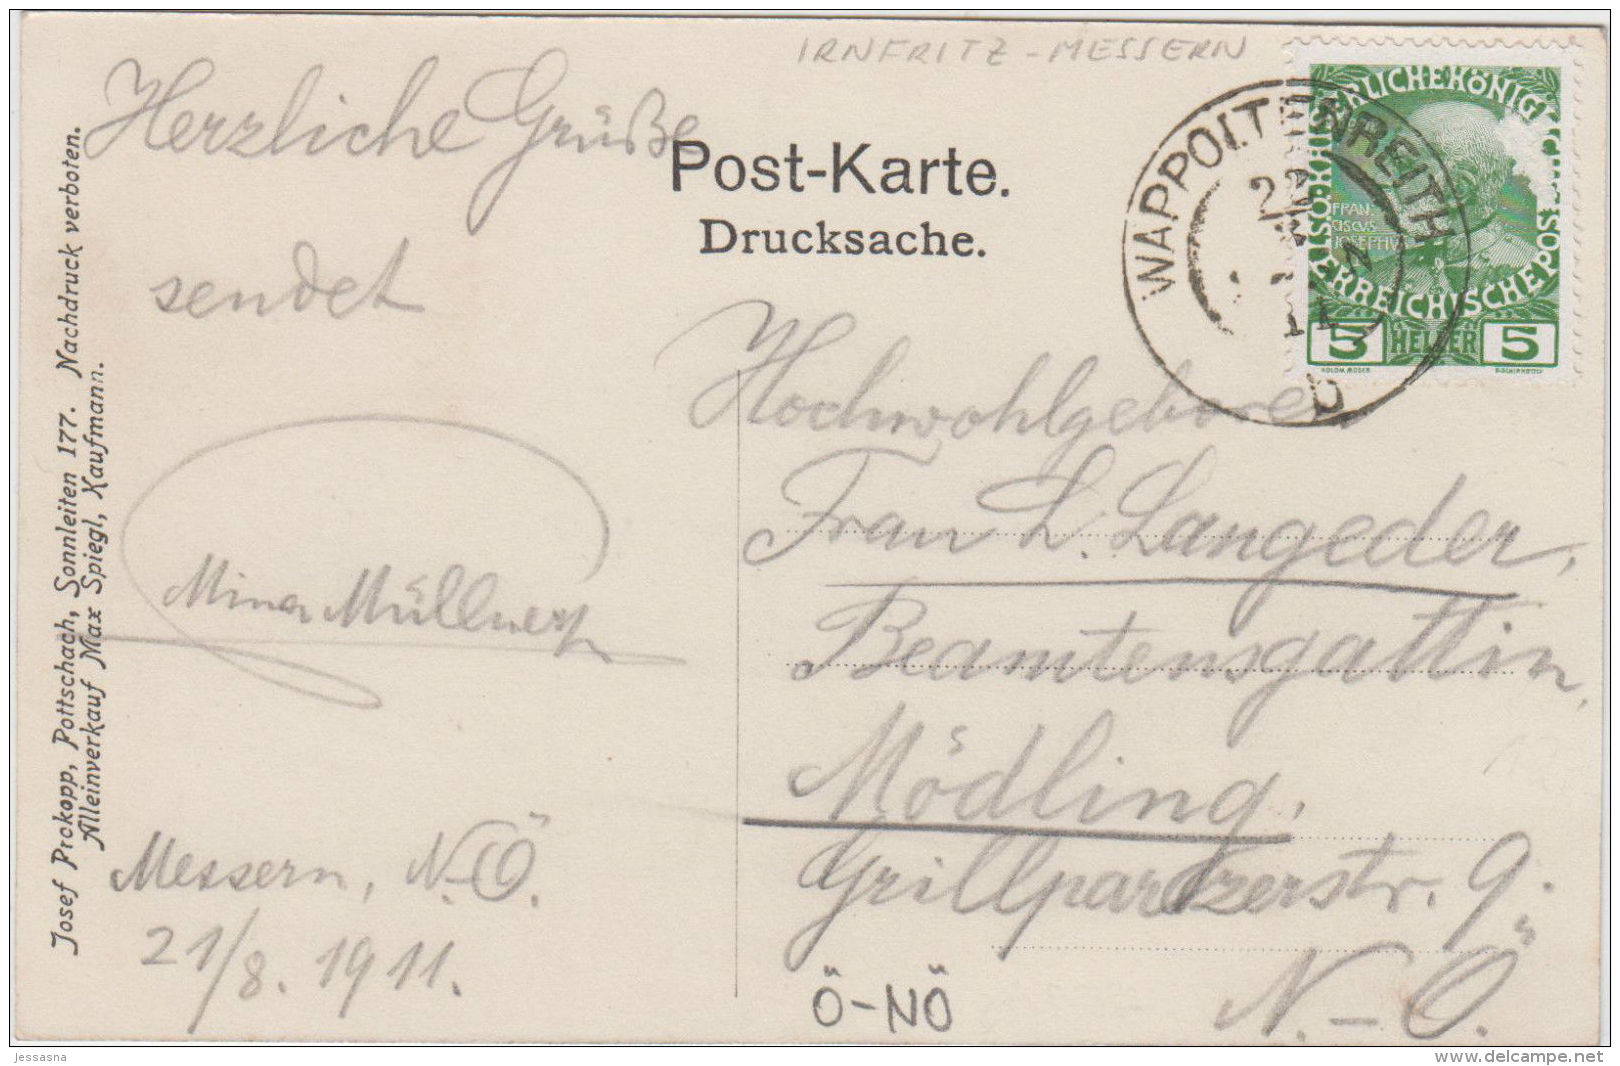 IRNFRITZ - MESSERN
Herzliche Grüße
sendet
Mina Müllner
Messern, N.-Ö.
21/8. 1911.
Josef Prokopp, Pottschach, Sonnleiten 177. Nachdruck verboten.
Alleinverkauf Max Spiegl, Kaufmann.
Post-Karte.
Drucksache.
WAPPOLTENREITH
KAISERLICHE KÖNIGL
ÖSTERREICHISCHE POST
FRAN
CISCVS
IOSEPHVS
5 HELLER 5
KOLOM. MOSER
Hochwohlgeboren
Frau L. Langeder,
Beamtensgattin,
Mödling.
Grillparzerstr. 9.
N.-Ö.
Ö-NÖ
Jessasna
www.delcampe.net